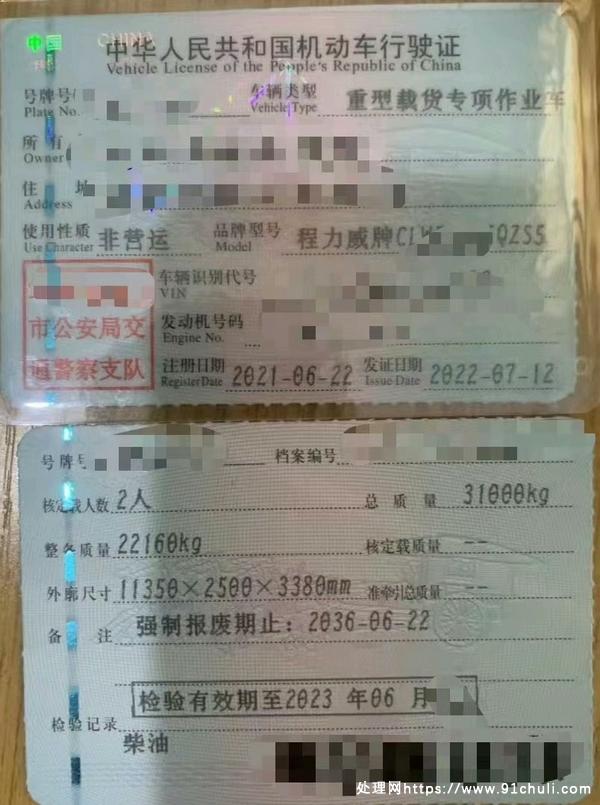 中国 CHINA
中华人民共和国机动车行驶证
Vehicle License of the People's Republic of China
号牌号
Plate No.
车辆类型
Vehicle Type
重型载货专项作业车
所有
Owner
住址
Address
使用性质
Use Character
非营运
品牌型号
Model
程力威牌CLW QZS5
市公安局交
通警察支队
车辆识别代号
VIN
发动机号码
Engine No.
注册日期
Register Date
2021-06-22
发证日期
Issue Date
2022-07-12
号牌号
档案编号
核定载人数 2人
总质量 31000kg
整备质量 22160kg
核定载质量 --
外廓尺寸 11350×2500×3380mm
准牵引总质量 --
备注 强制报废期止：2036-06-22
检验有效期至2023 年06 月
检验记录
柴油
处理网https://www.91chuli.com/